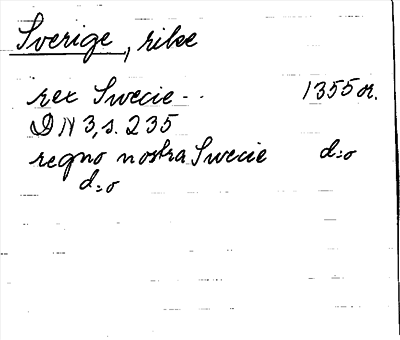 Sverige, rike
rex Swecie - - 1355 or.
DN 3, s. 235
regno nostra Swecie d:o
d:o